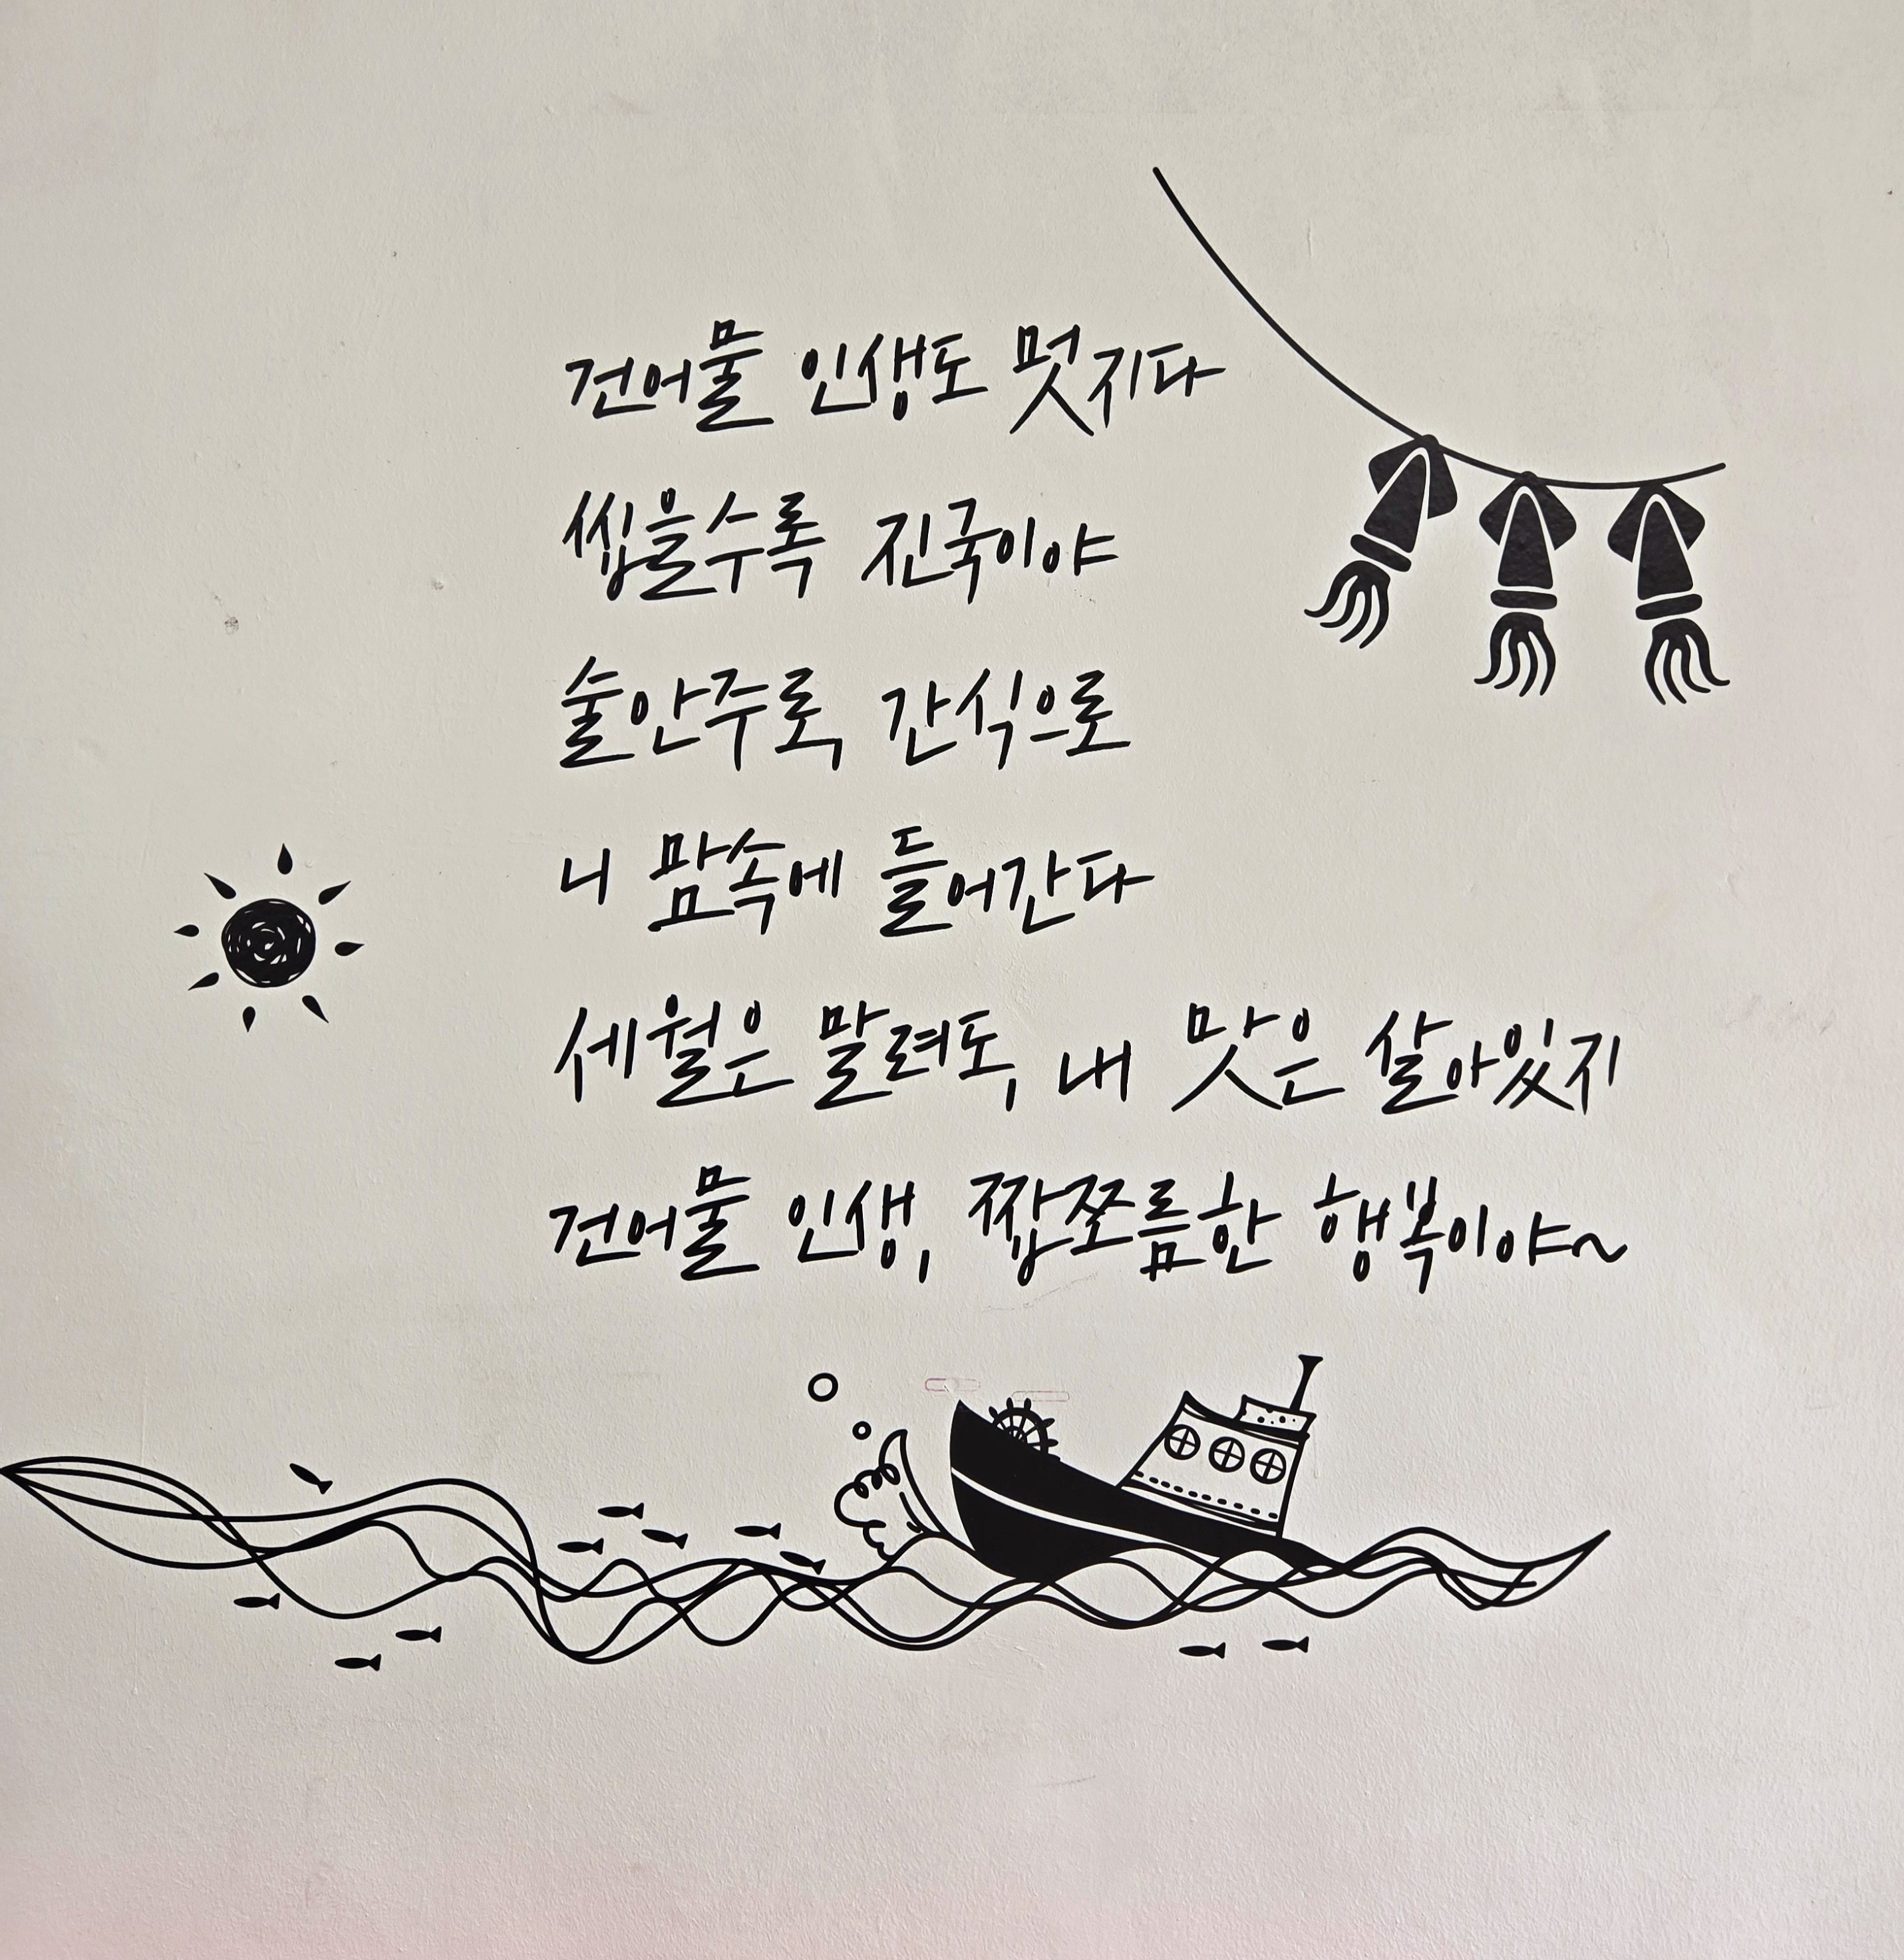 건어물 인생도 멋지다
씹을수록 진국이야
술안주로, 간식으로
니 맘속에 들어간다
세월은 말려도, 내 맛은 살아있지
건어물 인생, 짭쪼름한 행복이야~